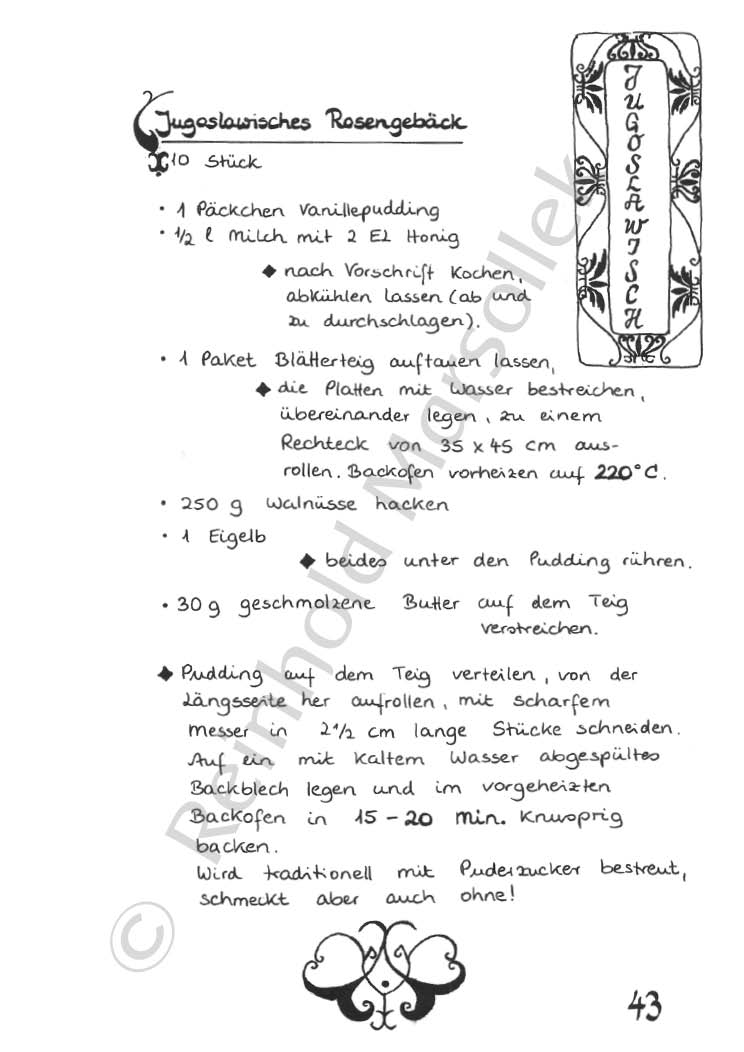 Jugoslawisches Rosengebäck
10 Stück
JUGOSLAWISCH
• 1 Päckchen Vanillepudding
• 1/2 l Milch mit 2 EL Honig
◆ nach Vorschrift kochen,
abkühlen lassen (ab und
zu durchschlagen).
• 1 Paket Blätterteig auftauen lassen,
◆ die Platten mit Wasser bestreichen,
übereinander legen, zu einem
Rechteck von 35 x 45 cm aus-
rollen. Backofen vorheizen auf 220°C.
• 250 g Walnüsse hacken
• 1 Eigelb
◆ beides unter den Pudding rühren.
• 30 g geschmolzene Butter auf dem Teig
verstreichen.
◆ Pudding auf dem Teig verteilen, von der
Längsseite her aufrollen, mit scharfem
Messer in 2 1/2 cm lange Stücke schneiden.
Auf ein mit kaltem Wasser abgespültes
Backblech legen und im vorgeheizten
Backofen in 15 - 20 Min. knusprig
backen.
Wird traditionell mit Puderzucker bestreut,
schmeckt aber auch ohne!
43
© Reinhold Marsollek